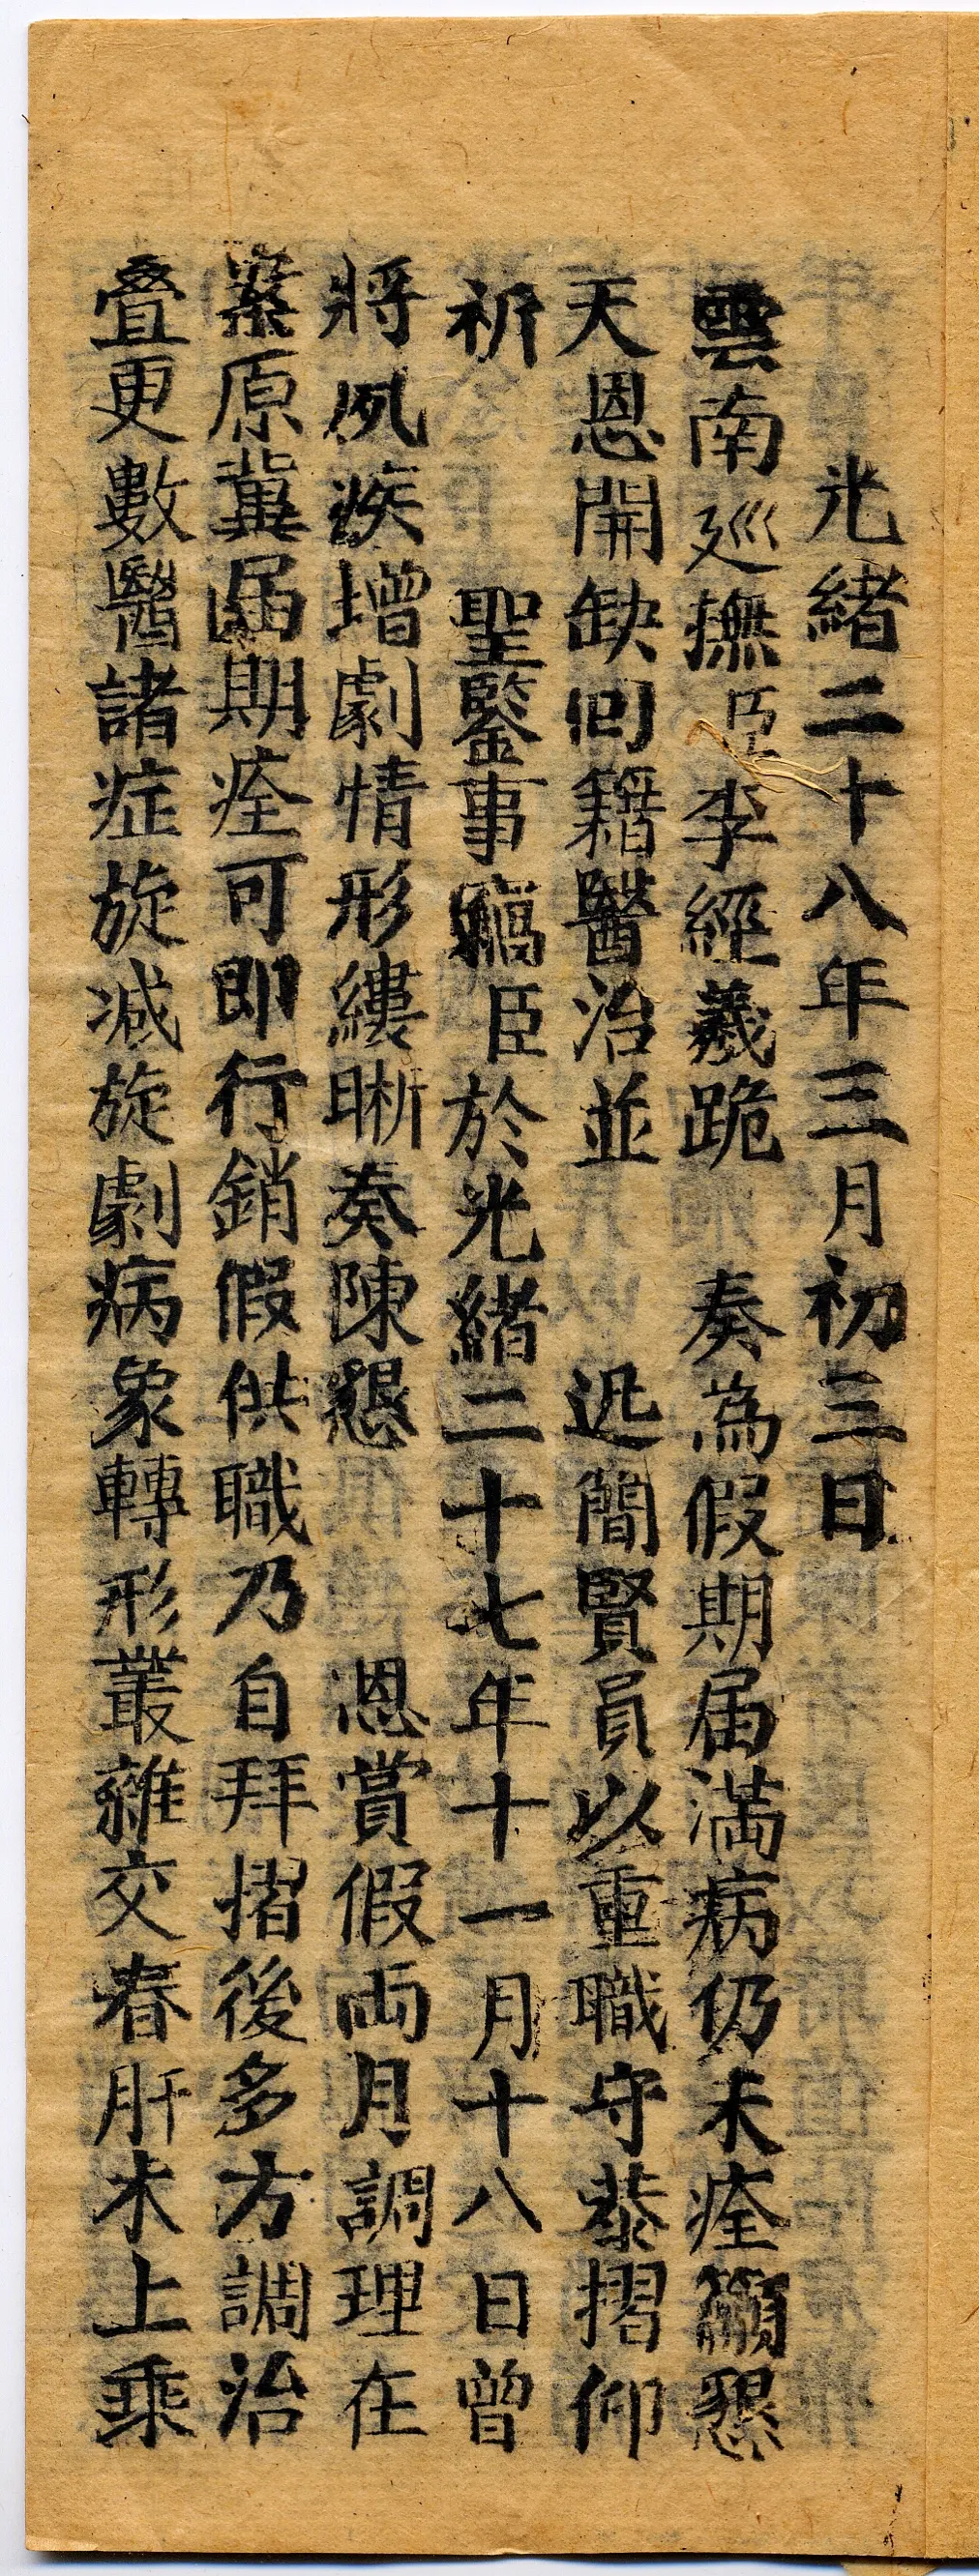 光緒二十八年三月初三日
雲南廵撫臣李經羲跪　奏為假期届滿病仍未痊籲懇
天恩開缺囘籍醫治並　迅簡賢員以重職守恭摺仰
祈　聖鑒事竊臣於光緒二十七年十一月十八日曾
將夙疾增劇情形縷晰奏陳懇　恩賞假兩月調理在
案原冀届期痊可即行銷假供職乃自拜摺後多方調治
叠更數醫諸症旋减旋劇病象轉形叢雜交春肝木上乘